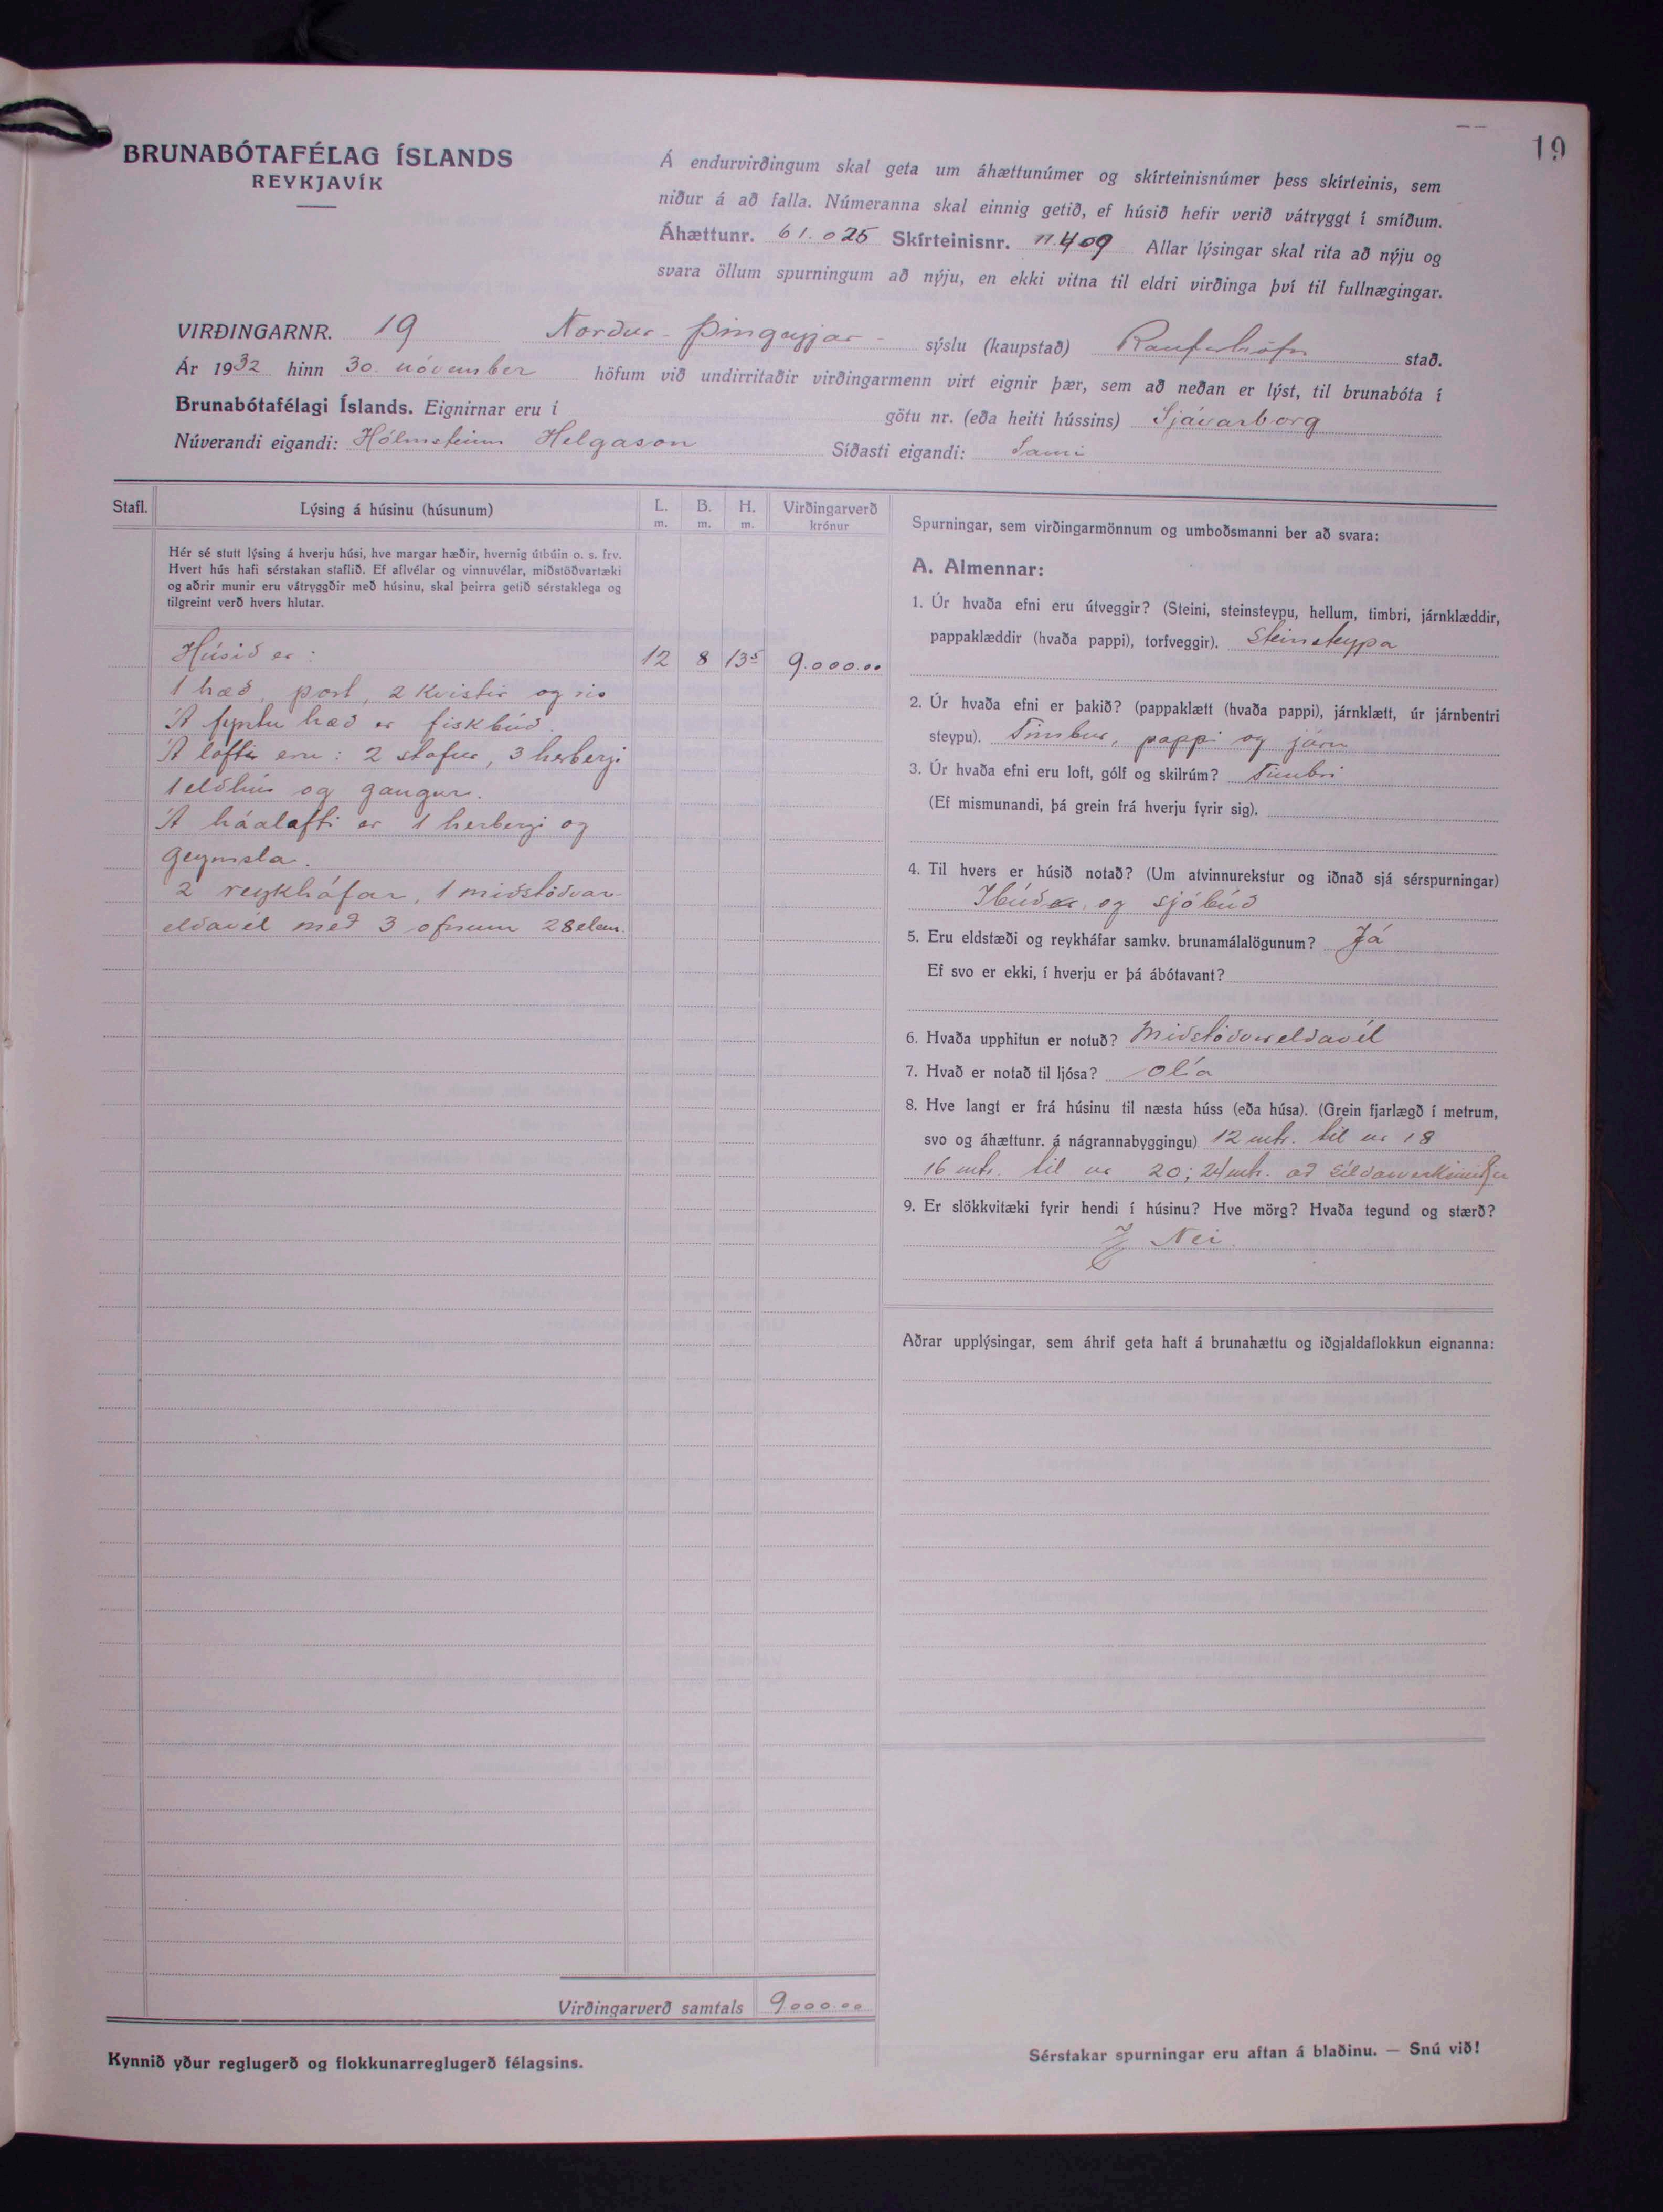 19
BRUNABÓTAFÉLAG ÍSLANDS
REYKJAVÍK
Á endurvirðingum skal geta um áhættunúmer og skírteinisnúmer þess skírteinis, sem
niður á að falla. Númeranna skal einnig getið, ef húsið hefir verið vátryggt í smíðum.
Áhættunr. 61.025 Skírteinisnr. 11.409 Allar lýsingar skal rita að nýju og
svara öllum spurningum að nýju, en ekki vitna til eldri virðinga því til fullnægingar.
VIRÐINGARNR. 19 Norður-Þingeyjar- sýslu (kaupstað) Raufarhöfn stað.
Ár 1932 hinn 30. nóvember höfum við undirritaðir virðingarmenn virt eignir þær, sem að neðan er lýst, til brunabóta í
Brunabótafélagi Íslands. Eignirnar eru í götu nr. (eða heiti hússins) Sjávarborg
Núverandi eigandi: Hólmsteinn Helgason Síðasti eigandi: Sami
Stafl. Lýsing á húsinu (húsunum) L. m. B. m. H. m. Virðingarverð krónur
Hér sé stutt lýsing á hverju húsi, hve margar hæðir, hvernig útbúin o. s. frv.
Hvert hús hafi sérstakan staflið. Ef aflvélar og vinnuvélar, miðstöðvartæki
og aðrir munir eru vátryggðir með húsinu, skal þeirra getið sérstaklega og
tilgreint verð hvers hlutar.
Húsið er: 12 8 13⁵ 9.000.00
1 hæð, port, 2 kvistir og ris
Á fyrstu hæð er fiskbúð.
Á lofti eru: 2 stofur, 3 herbergi
1 eldhús og gangur.
Á háalofti er 1 herbergi og
geymsla.
2 reykháfar, 1 miðstöðvar-
eldavél með 3 ofnum 28 elem.
Virðingarverð samtals 9.000.00
Kynnið yður reglugerð og flokkunarreglugerð félagsins.
Spurningar, sem virðingarmönnum og umboðsmanni ber að svara:
A. Almennar:
1. Úr hvaða efni eru útveggir? (Steini, steinsteypu, hellum, timbri, járnklæddir,
pappaklæddir (hvaða pappi), torfveggir). Steinsteypa
2. Úr hvaða efni er þakið? (pappaklætt (hvaða pappi), járnklætt, úr járnbentri
steypu). Timbur, pappi og járn
3. Úr hvaða efni eru loft, gólf og skilrúm? Timbri
(Ef mismunandi, þá grein frá hverju fyrir sig).
4. Til hvers er húsið notað? (Um atvinnurekstur og iðnað sjá sérspurningar)
Íbúðar og sjóbúð
5. Eru eldstæði og reykháfar samkv. brunamálalögunum? Já
Ef svo er ekki, í hverju er þá ábótavant?
6. Hvaða upphitun er notuð? Miðstöðvareldavél
7. Hvað er notað til ljósa? olía
8. Hve langt er frá húsinu til næsta húss (eða húsa). (Grein fjarlægð í metrum,
svo og áhættunr. á nágrannabyggingu) 12 mtr. til nr 18
16 mtr. til nr 20; 24 mtr. að
9. Er slökkvitæki fyrir hendi í húsinu? Hve mörg? Hvaða tegund og stærð?
Nei.
Aðrar upplýsingar, sem áhrif geta haft á brunahættu og iðgjaldaflokkun eignanna:
Sérstakar spurningar eru aftan á blaðinu. — Snú við!